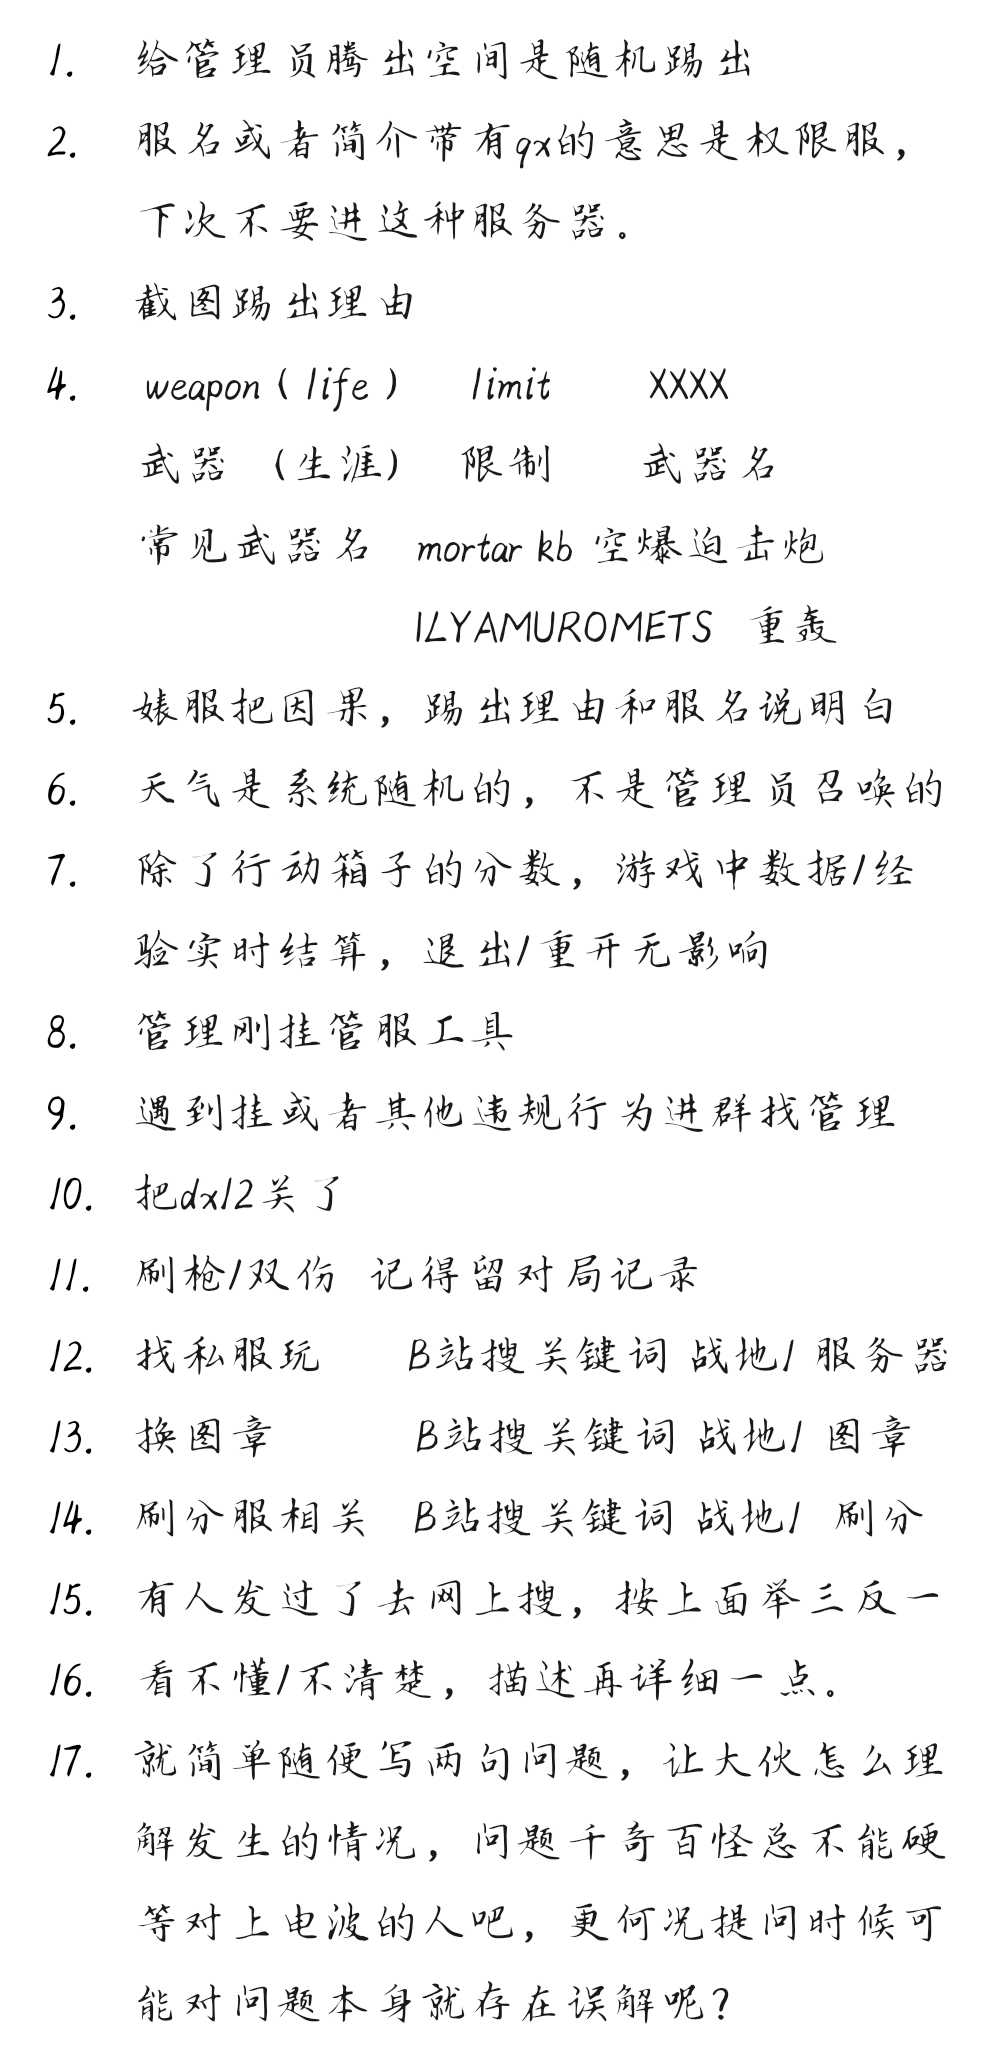 1. 给管理员腾出空间是随机踢出
2. 服名或者简介带有qx的意思是权限服，
下次不要进这种服务器。
3. 截图踢出理由
4. weapon（life） limit XXXX
武器 （生涯） 限制 武器名
常见武器名 mortar kb 空爆迫击炮
ILYAMUROMETS 重轰
5. 婊服把因果，踢出理由和服名说明白
6. 天气是系统随机的，不是管理员召唤的
7. 除了行动箱子的分数，游戏中数据/经
验实时结算，退出/重开无影响
8. 管理刚挂管服工具
9. 遇到挂或者其他违规行为进群找管理
10. 把dx12关了
11. 刷枪/双伤 记得留对局记录
12. 找私服玩 B站搜关键词 战地1 服务器
13. 换图章 B站搜关键词 战地1 图章
14. 刷分服相关 B站搜关键词 战地1 刷分
15. 有人发过了去网上搜，按上面举三反一
16. 看不懂/不清楚，描述再详细一点。
17. 就简单随便写两句问题，让大伙怎么理
解发生的情况，问题千奇百怪总不能硬
等对上电波的人吧，更何况提问时候可
能对问题本身就存在误解呢？